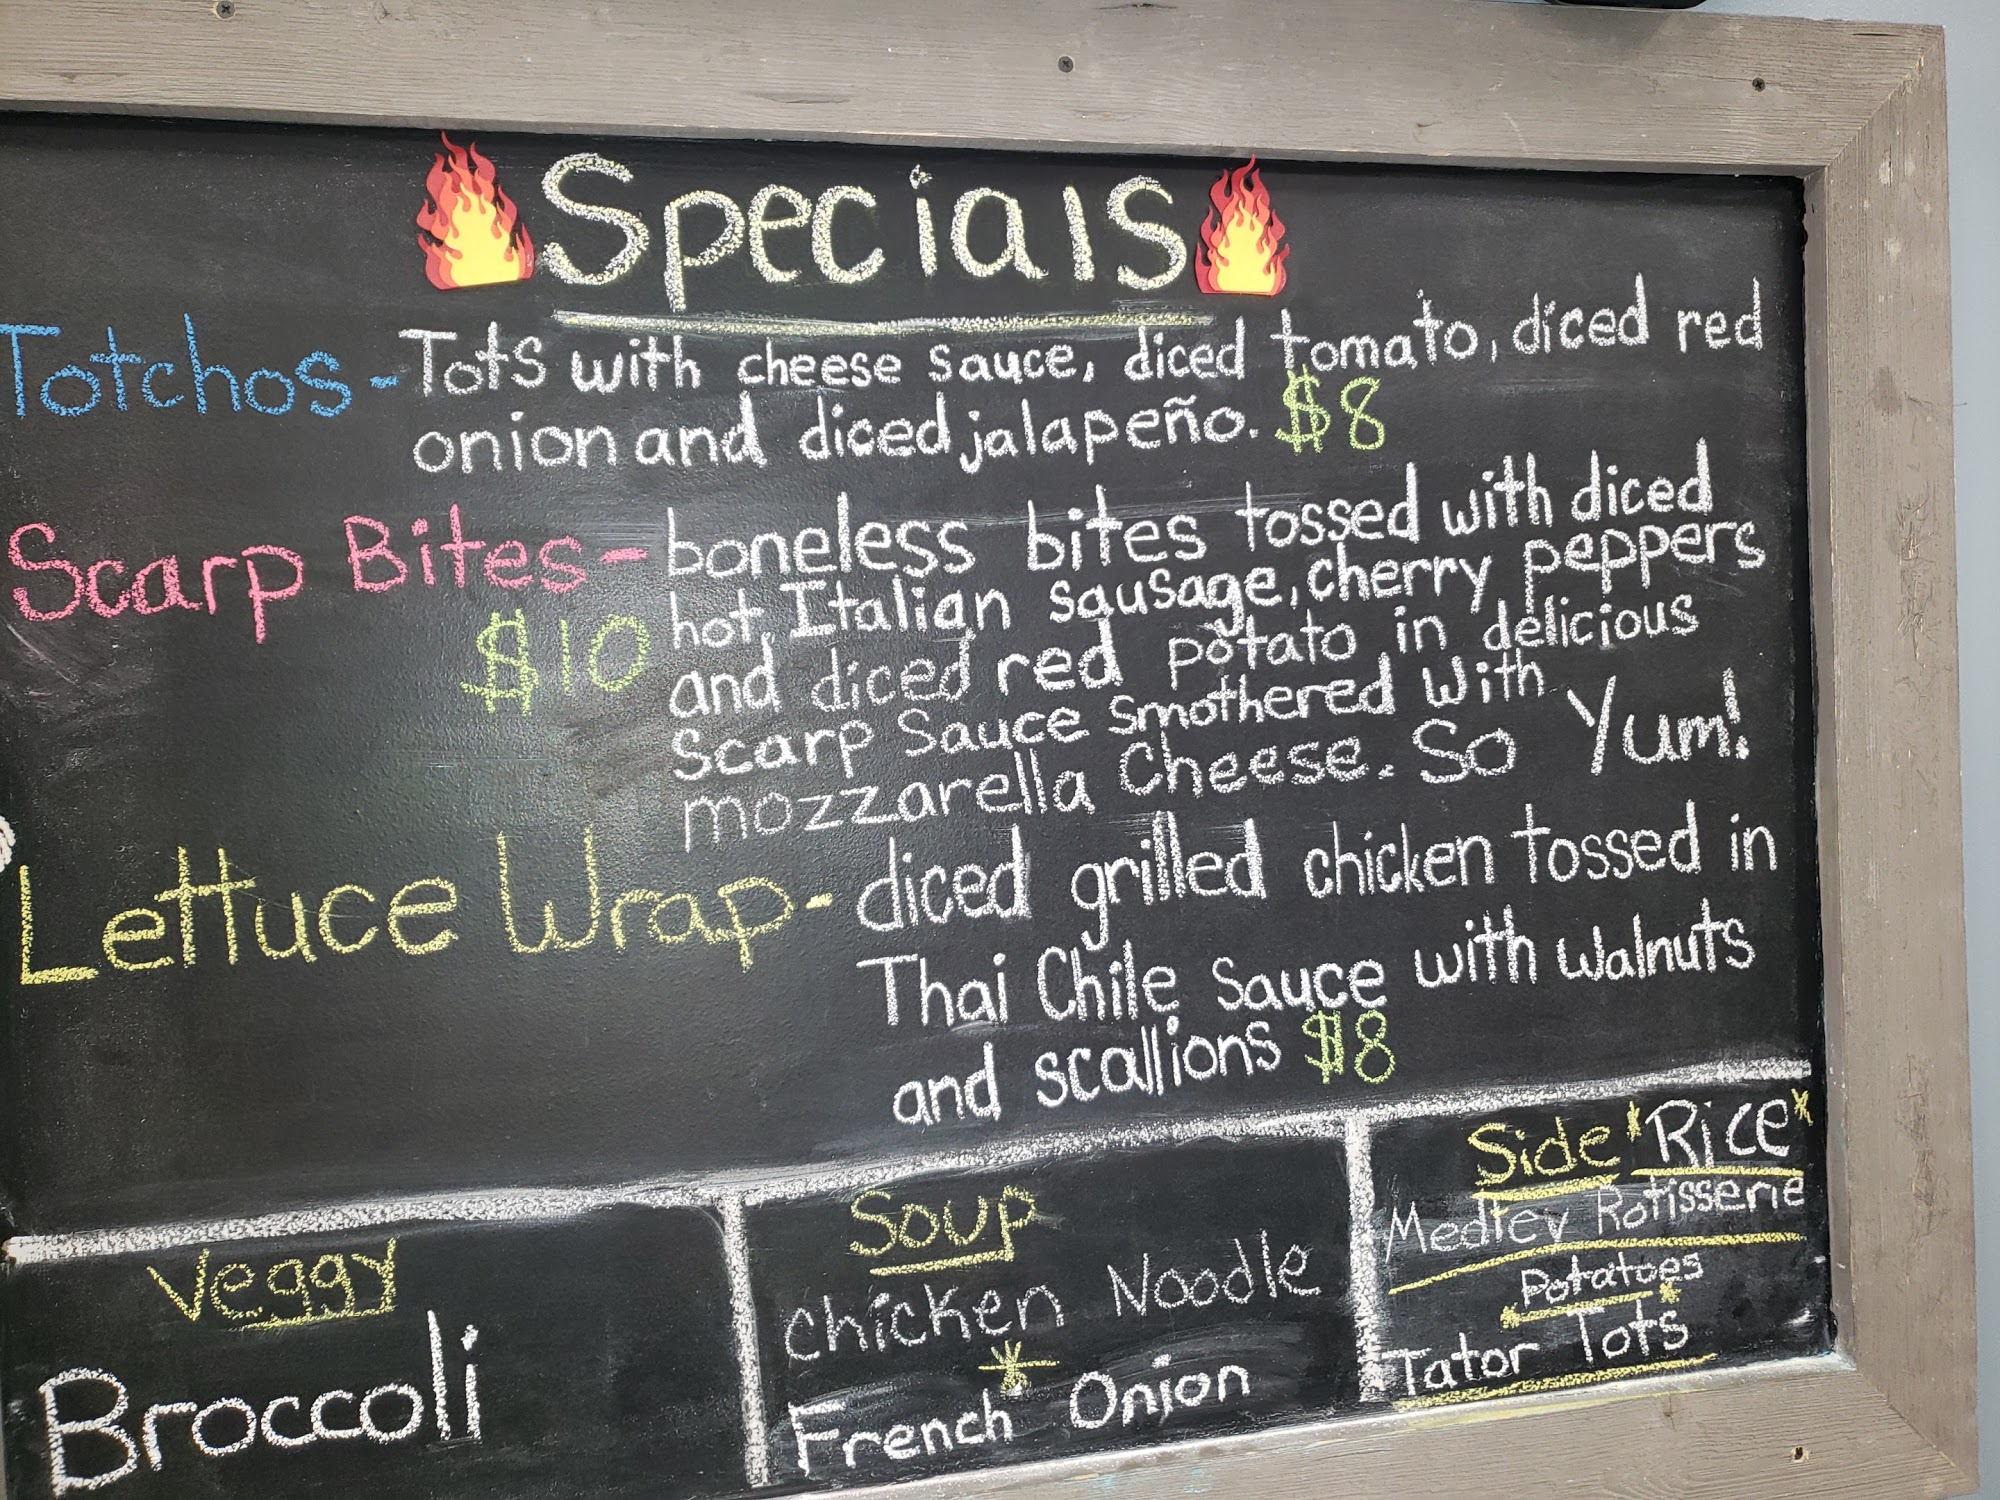 Specials
Totchos - Tots with cheese sauce, diced tomato, diced red
onion and diced jalapeño. $8
Scarp Bites - boneless bites tossed with diced
$10 hot Italian sausage, cherry peppers
and diced red potato in delicious
Scarp Sauce smothered with
mozzarella Cheese. So Yum!
Lettuce Wrap - diced grilled chicken tossed in
Thai Chile Sauce with walnuts
and scallions $8
Veggy
Broccoli
Soup
Chicken Noodle
*
French Onion
Side *Rice*
Medley Rotisserie
Potatoes
* *
Tator Tots